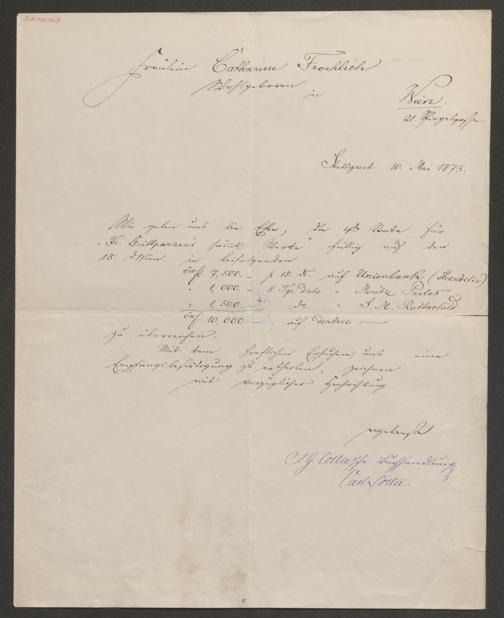 Fräulein Catharine Froehlich
Wohlgeboren
in
Wien.
21 Spiegelgasse
Stuttgart 10. Mai 1873.
Wir geben uns die Ehre, die Rate für
"Fr. Grillparzer's sämtl. Werke" fällig auf den
15. dMon. in beifolgenden
7,500.- p 15. auf Unionbank
" 1,000.- 8 Tge dato " Moritz Perles
" 1,500.- do " S. M. Rothschild
10,000.- auf dorten
zu überreichen.
Mit dem höflichen Ersuchen, uns eine
Empfangsbestätigung zu ertheilen, zeichnen
mit vorzüglicher Hochachtung
ergebenst
J. G. Cotta'sche Buchhandlung
Carl Cotta.